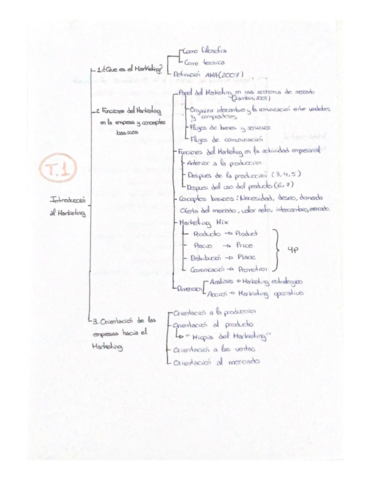 T.1
Introducció al Marketing
1. ¿Que es el Marketing?
Como filosofia
Como tecnica
Definición AMA (2008)
2. Funciones del Marketing
en la empresa y conceptos
basicos
Papel del Marketing en una economia de mercado
Organizar intercambio y la comunicación entre vendedores
y compradores
Flujos de bienes y servicios
Flujos de comunicación
Funciones del Marketing en la actividad empresarial
Anterior a la produccion
Despues de la producción (3, 4, 5)
Despues del uso del producto (6, 7)
Conceptos basicos: Necesidad, deseo, demanda
Oferta del mercado, valor neto, intercambio, mercado
Marketing Mix
Producto → Product
Precio → Price
Distribución → Place
Comunicación → Promotion
4P
Analisis → Marketing estrategico
Accion → Marketing operativo
3. Orientación de las
empresas hacia el
Marketing
Orientació a la produccion
Orientació al producto
→ "Miopia del Marketing"
Orientació a las ventas
Orientació al mercado